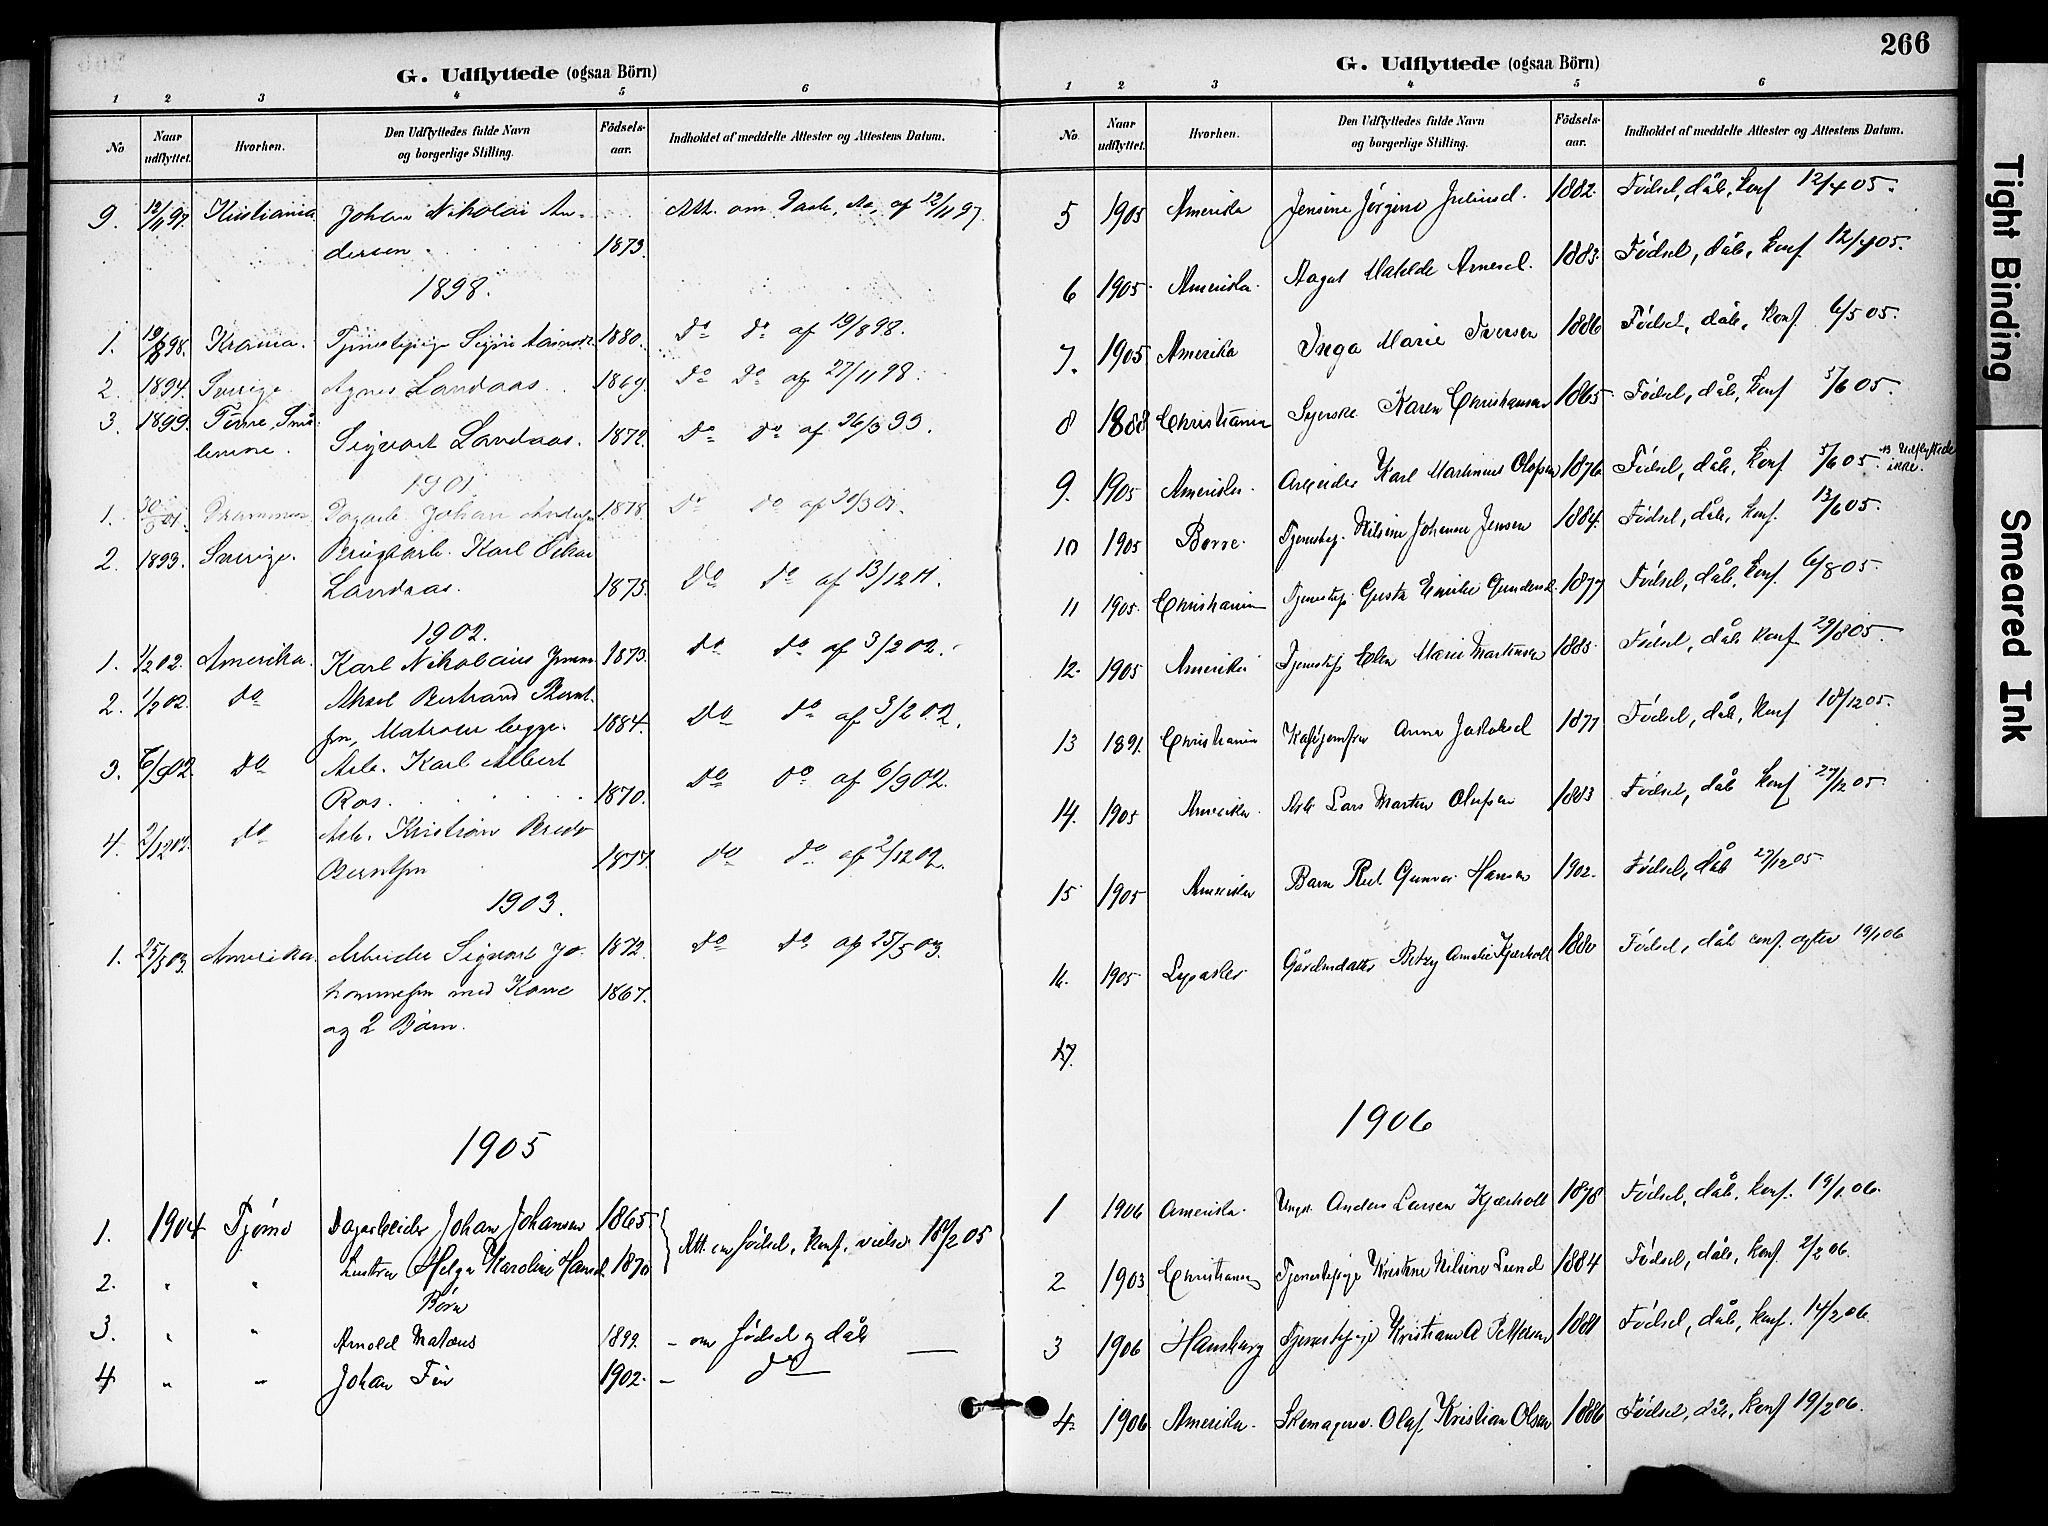 G. Udflyttede (ogsaa Börn)
1 2 3 4 5 6
No Naar udflyttet. Hvorhen. Den Udflyttedes fulde Navn og borgerlige Stilling. Födsels-aar. Indholdet af meddelte Attester og Attestens Datum.
9. 12/11 97. Kristiania Johan Nikolai An-
dersen. 1873. Att. om Daab, af 12/11 97.
1898.
1. 19/8 98. Krania. Tjenestepige Signe 1880. Do do af 19/8 98.
2. 1894. Sverige. Agnes Landaas. 1869. Do Do af 27/11 98.
3. 1899. Smaa-
lenene. Sigvart Landaas. 1872. Do do af 26/3 99.
1901
1. 30/3 01. Drammen. Johan 1878. Do do af 30/3 01.
2. 1893. Sverige. Karl Oskar
Landaas. 1875. Do do af 13/12 11.
1902.
1. 1/2 02. Amerika. Karl Nikolaius 1873. Do do af 3/2 02.
2. 1/2 02. do Aksel Bertrand Bernt-
sen, Matros begge. 1884. Do do af 3/2 02.
3. 6/9 02. do Arb. Karl Albert
Ros. 1870. Do do af 6/9 02.
4. 2/12 02. do Arb. Kristian
Berntsen 1877. do do af 2/12 02.
1903.
1. 25/5 03. Amerika. Arbeider Sigvart Jo-
hannessen med Kone
og 2 Børn. 1872. 1867. Do do af 25/5 03.
1905
1. 1904 Tjømø Dagarbeider Johan Johansen 1865. Att. om fødsel, konf., vielse 18/2 05
2. " " hustru Helga Karoline Hansd. 1870
Børn
3. " " Arnold Mataus 1899. - om fødsel og dåb
4 " " Johan 1902. - do
G. Udflyttede (ogsaa Börn)
266
1 2 3 4 5 6
No. Naar udflyttet. Hvorhen. Den Udflyttedes fulde Navn og borgerlige Stilling. Födsels-aar. Indholdet af meddelte Attester og Attestens Datum.
5 1905 Amerika Jensine Jørgine Juliusd. 1882. Fødsel, dåb, konf 12/4 05.
6 1905. Amerika. Aagot Matilde Arnesd. 1883. Fødsel, dåb, konf. 12/4 05.
7. 1905 Amerika Inga Marie Iversen 1886 Fødsel, dåb, konf. 6/5 05.
8 1888 Christiania Syerske Karen Christiansen 1865 Fødsel, dåb, konf 5/6 05.
9. 1905 Amerika. Arbeider Karl Martinius Olafsen 1876 Fødsel, dåb, konf 5/6 05. Udflyttede ikke.
10 1905 Borre. Tjenestep. Nilsine Johanne Jensen 1884. Fødsel, dåb, konf. 13/6 05.
11 1905. Christiania Tjenestep. Gusta Emilie Gundersd. 1877. Fødsel, dåb, konf. 6/8 05.
12. 1905 Amerika Tjenestep. Marie Martinsen 1885. Fødsel, dåb konf 29/8 05.
13 1891. Christiania Anna Jakobsd 1877 Fødsel, dåb, konf 18/12 05.
14. 1905 Amerika Arb. Lars Martin Olafsen 1883 Fødsel, dåb konf 27/12 05.
15 1905 Amerika Barn Gunvor Hansen 1902. Fødsel, dåb 27/12 05
16. 1905 Gårdmdatter Betzy Amalie Kjærholt 1880 Fødsel, dåb conf. 19/1 06
17.
1906
1 1906 Amerika. Ungk. Anders Larsen Kjærholt 1878 Fødsel, dåb, konf. 19/1 06.
2 1903 Christiania Tjenestepige Kristine Nilsine Lund 1884 Fødsel, dåb, konf. 2/2 06.
3 1906 Hamburg Tjenestepige Kristiane A Pettersen 1881 Fødsel, dåb, konf. 14/2 06.
4. 1906 Amerika. Skomagersv. Olaf Kristian Olsen 1886 Fødsel, dåb, konf 19/2 06.
Tight Binding
Smeared Ink